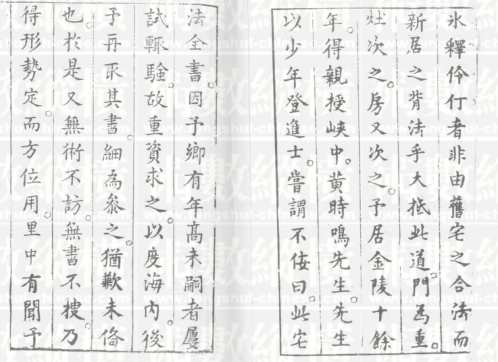 氷釋伶仃者非由舊宅之合法而
新居之背法乎大抵此道門為重。
灶次之。房又次之。予居金陵十餘
年。得親授峽中。黄時鳴先生。先生
以少年登進士。嘗謂不佞曰。此宅
法全書。因予鄉有年高未嗣者屢
試輒驗。故重資求之。以度海内。後
予再取其書。細為叅之。猶歉未俻
也。於是又無術不訪。無書不搜。乃
得形勢定。而方位用。里中有聞予